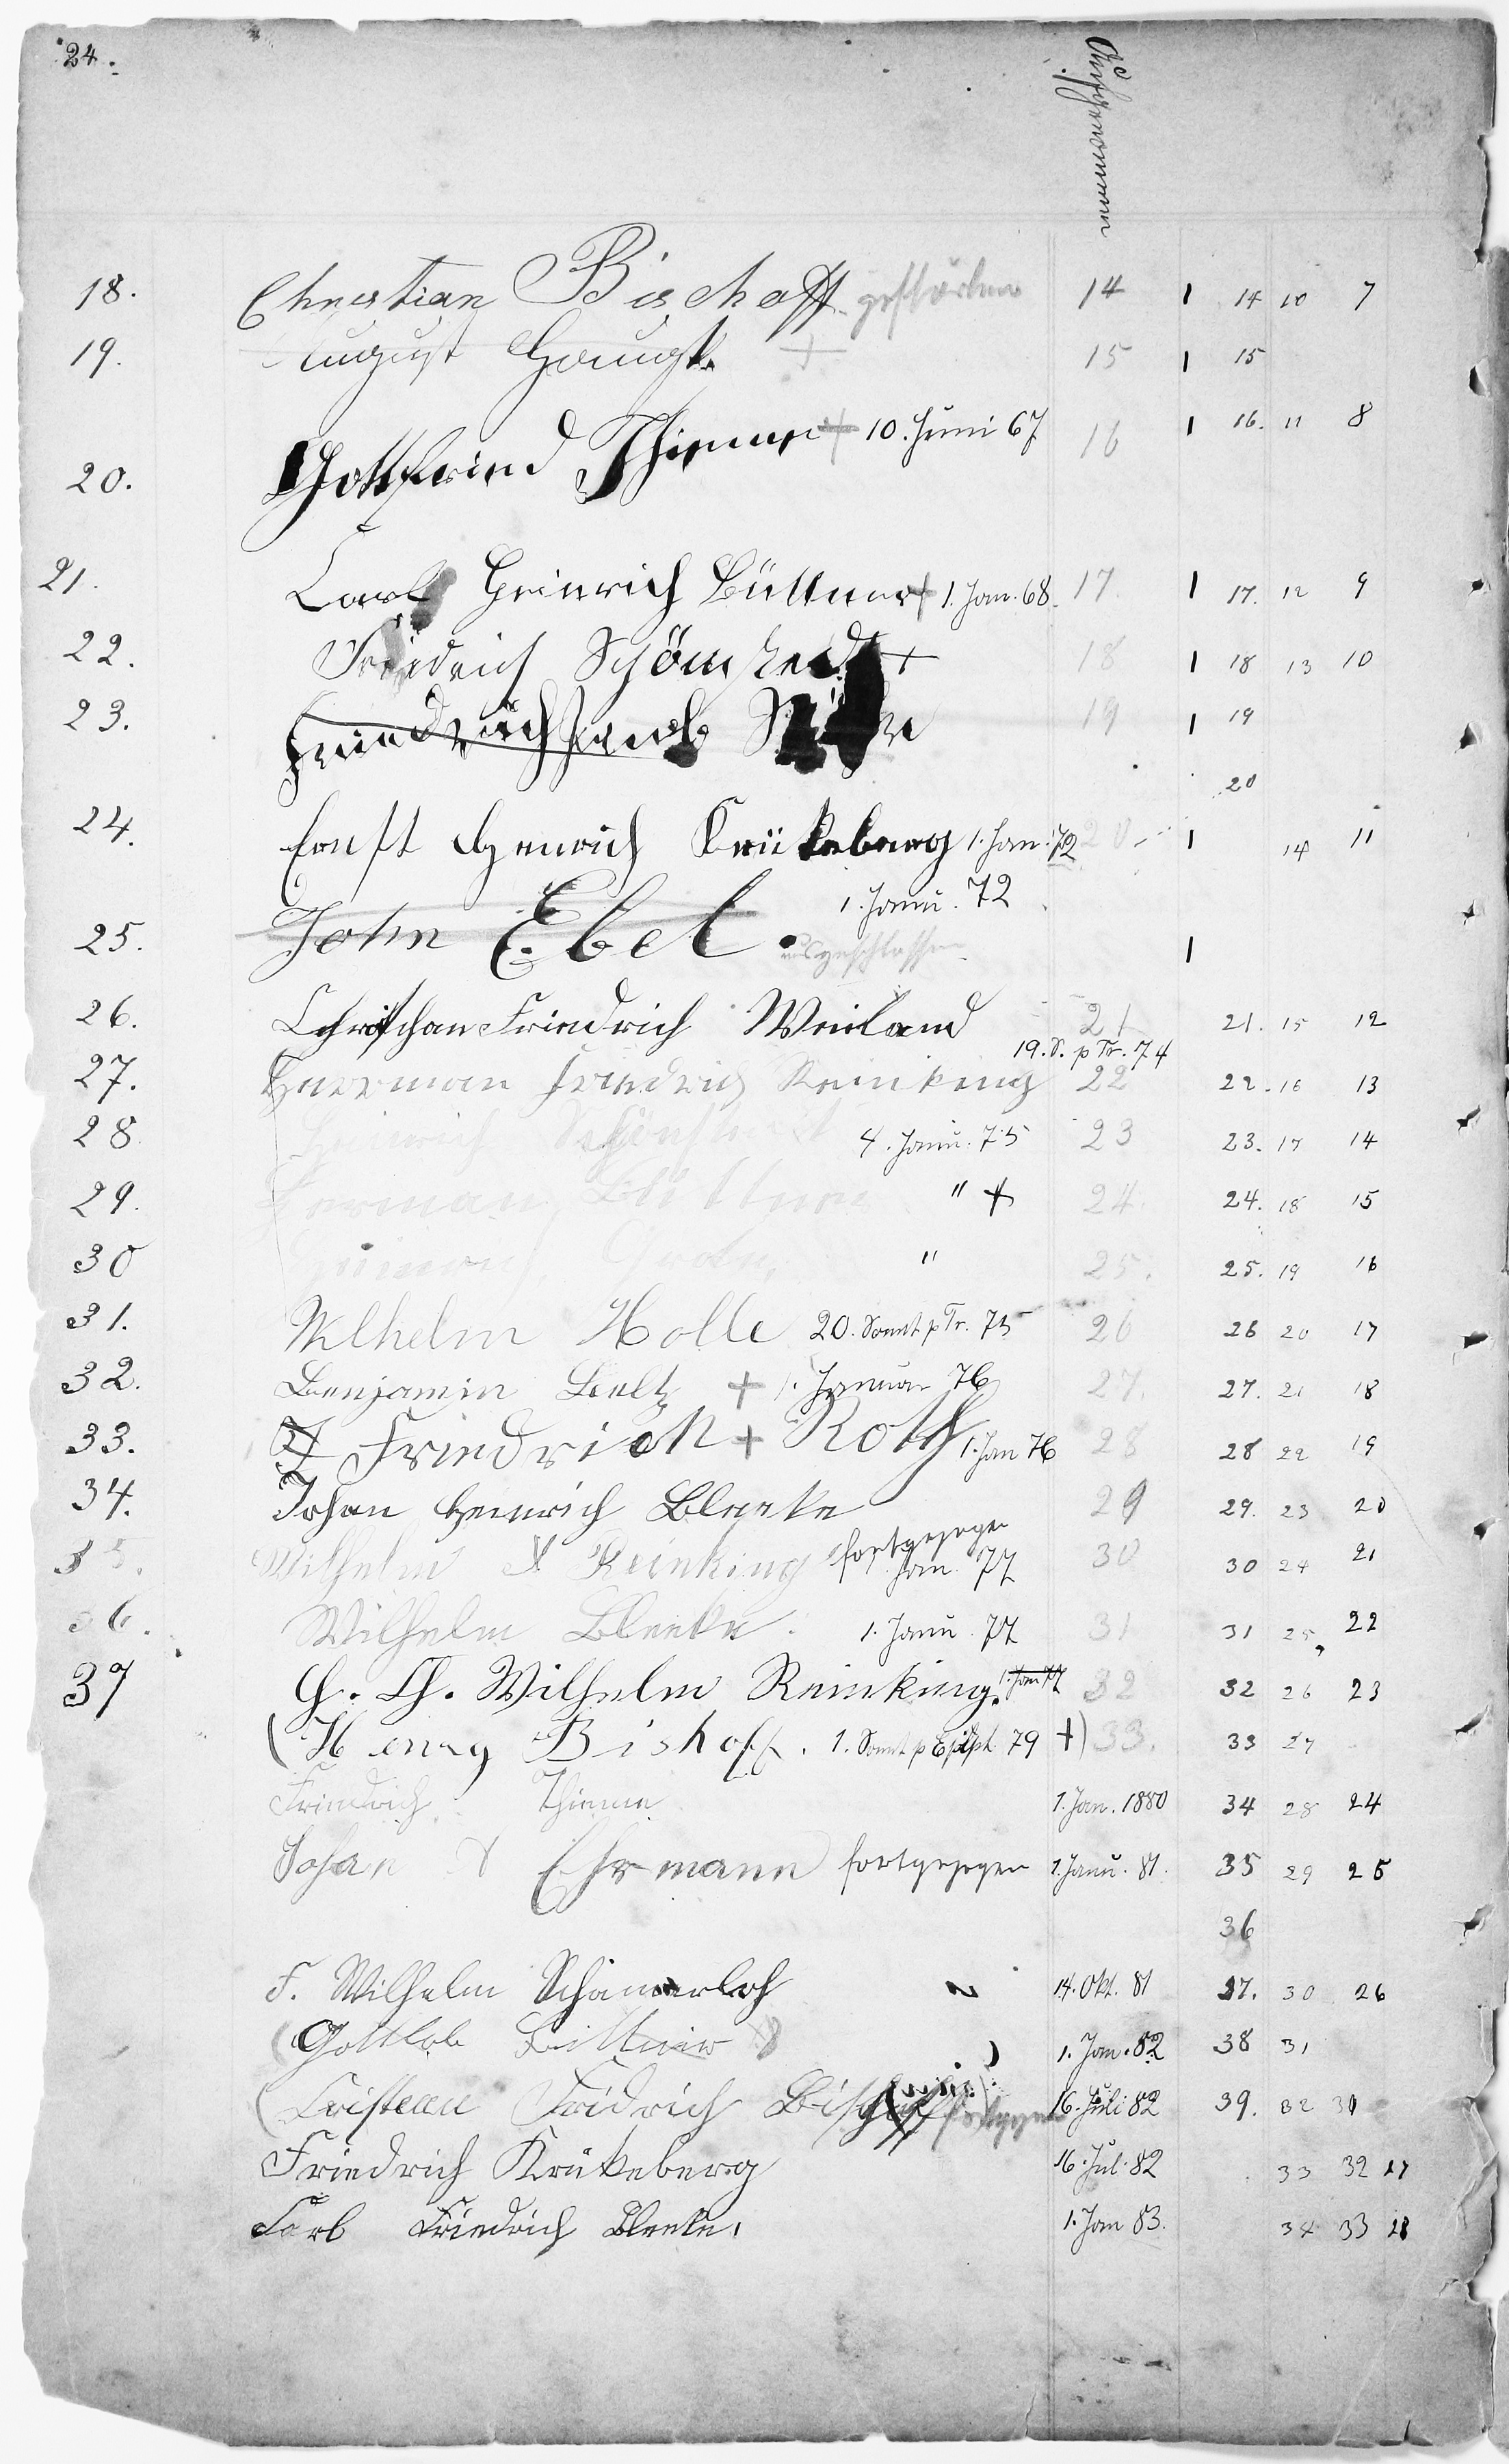 24.
Aufgenommen
18. Christian Bischoff gestorben 14 1 14 10 7
19. August Haugk + 15 1 15
20. Gottfried Thieme + 10. Juni 67 16 1 16. 11 8
21. Carl Heinrich Büttner + 1. Jan. 68. 17 1 17. 12 9
22. Friedrich Schönstedt + 18 1 18 13 10
23. Friedrich Jacob 19 1 19
20
24. Ernst Heinrich Krükeberg 1. Jan. 72 20 1 14 11
25. John Ebel 1. Janu. 72 ausgeschlossen 1
26. Christian Friedrich Weiland 21 21. 15 12
27. Herrman Friedrich Reinking 19. S. p Tr. 74 22 22. 16 13
28 Heinrich Schönstedt 4. Janu. 75 23 23. 17 14
29. Herman Büttner " + 24. 24. 18 15
30 " 25. 25. 19 16
31. Wilhelm Holle 20. Sonnt. p Tr. 75 26 26 20 17
32. Benjamin Beltz + 1. Januar 76 27 27. 21 18
33. Friedrich + Roth 1. Jan 76 28 28 22 19
34. Johan Heinrich Bleeke 29 29. 23 20
35. Wilhelm Reinking fortgezogen Jan. 77 30 30 24 21
36. Wilhelm Bleeke. 1. Janu. 77 31 31 25 22
37 H. Ch. Wilhelm Reinking. 1. Jan 77 32 32 26 23
(Henry Bishoff. 1. Sonnt p Epiph. 79 +) 33. 33 27
Friedrich Thieme 1. Jan. 1880 34 28 24
Johan Ehrmann fortgezogen 1. Janu. 81. 35 29 25
36
F. Wilhelm Schamerloh 14. Okt. 81 37. 30 26
(Gottlob Büttner ) 1. Jan. 82 38 31
(Cristian Fridrich Bischoff 16. Juli 82 39. 32 31
Friedrich Krükeberg 16. Jul. 82 33 32 27
Karl Friedrich Bleeke. 1. Jan 83. 34 33 28